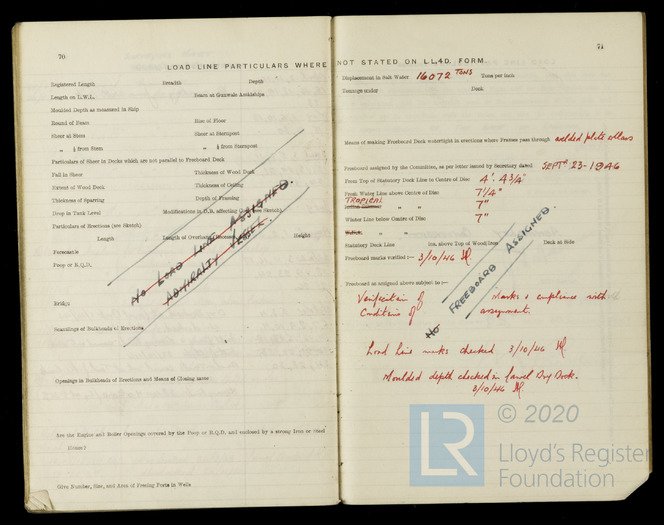 70
LOAD LINE PARTICULARS WHERE
Registered Length Breadth Depth
Length on L.W.L. Beam at Gunwale Amidships
Moulded Depth as measured in Ship
Round of Beam Rise of Floor
Sheer at Stem Sheer at Sternpost
„ ⅛ from Stem „ ⅛ from Sternpost
Particulars of Sheer in Decks which are not parallel to Freeboard Deck
Fall in Sheer Thickness of Wood Deck
Extent of Wood Deck Thickness of Ceiling
Thickness of Sparring Depth of Framing
Drop in Tank Level Modifications in D.B. affecting (see Sketch)
Particulars of Erections (see Sketch)
Length Length of Overhang Height
Forecastle
Poop or R.Q.D.
NO LOAD LINE ASSIGNED.
ADMIRALTY VESSEL.
Bridge
Scantlings of Bulkheads of Erections
Openings in Bulkheads of Erections and Means of Closing same
Are the Engine and Boiler Openings covered by the Poop or R.Q.D. and enclosed by a strong Iron or Steel
House?
Give Number, Size, and Area of Freeing Ports in Wells
71
NOT STATED ON LL4D. FORM.
Displacement in Salt Water 16072 TONS Tons per Inch
Tonnage under Deck
Means of making Freeboard Deck watertight in erections where Frames pass through welded plate collars
Freeboard assigned by the Committee, as per letter issued by Secretary dated SEPTR 23-1946
From Top of Statutory Deck Line to Centre of Disc 4'. 4¾"
Fresh Water Line above Centre of Disc 7¼"
TROPICAL „ „ 7"
Winter Line below Centre of Disc 7"
„ „
Statutory Deck Line ins. above Top of Wood/Iron Deck at Side
Freeboard marks verified :— 3/10/46
NO FREEBOARD ASSIGNED.
Freeboard as assigned above subject to :—
Verification of Marks & compliance with
Conditions of assignment.
Load Line marks checked 3/10/46
Moulded depth checked in Dry Dock.
3/10/46
LR
© 2020
Lloyd's Register
Foundation